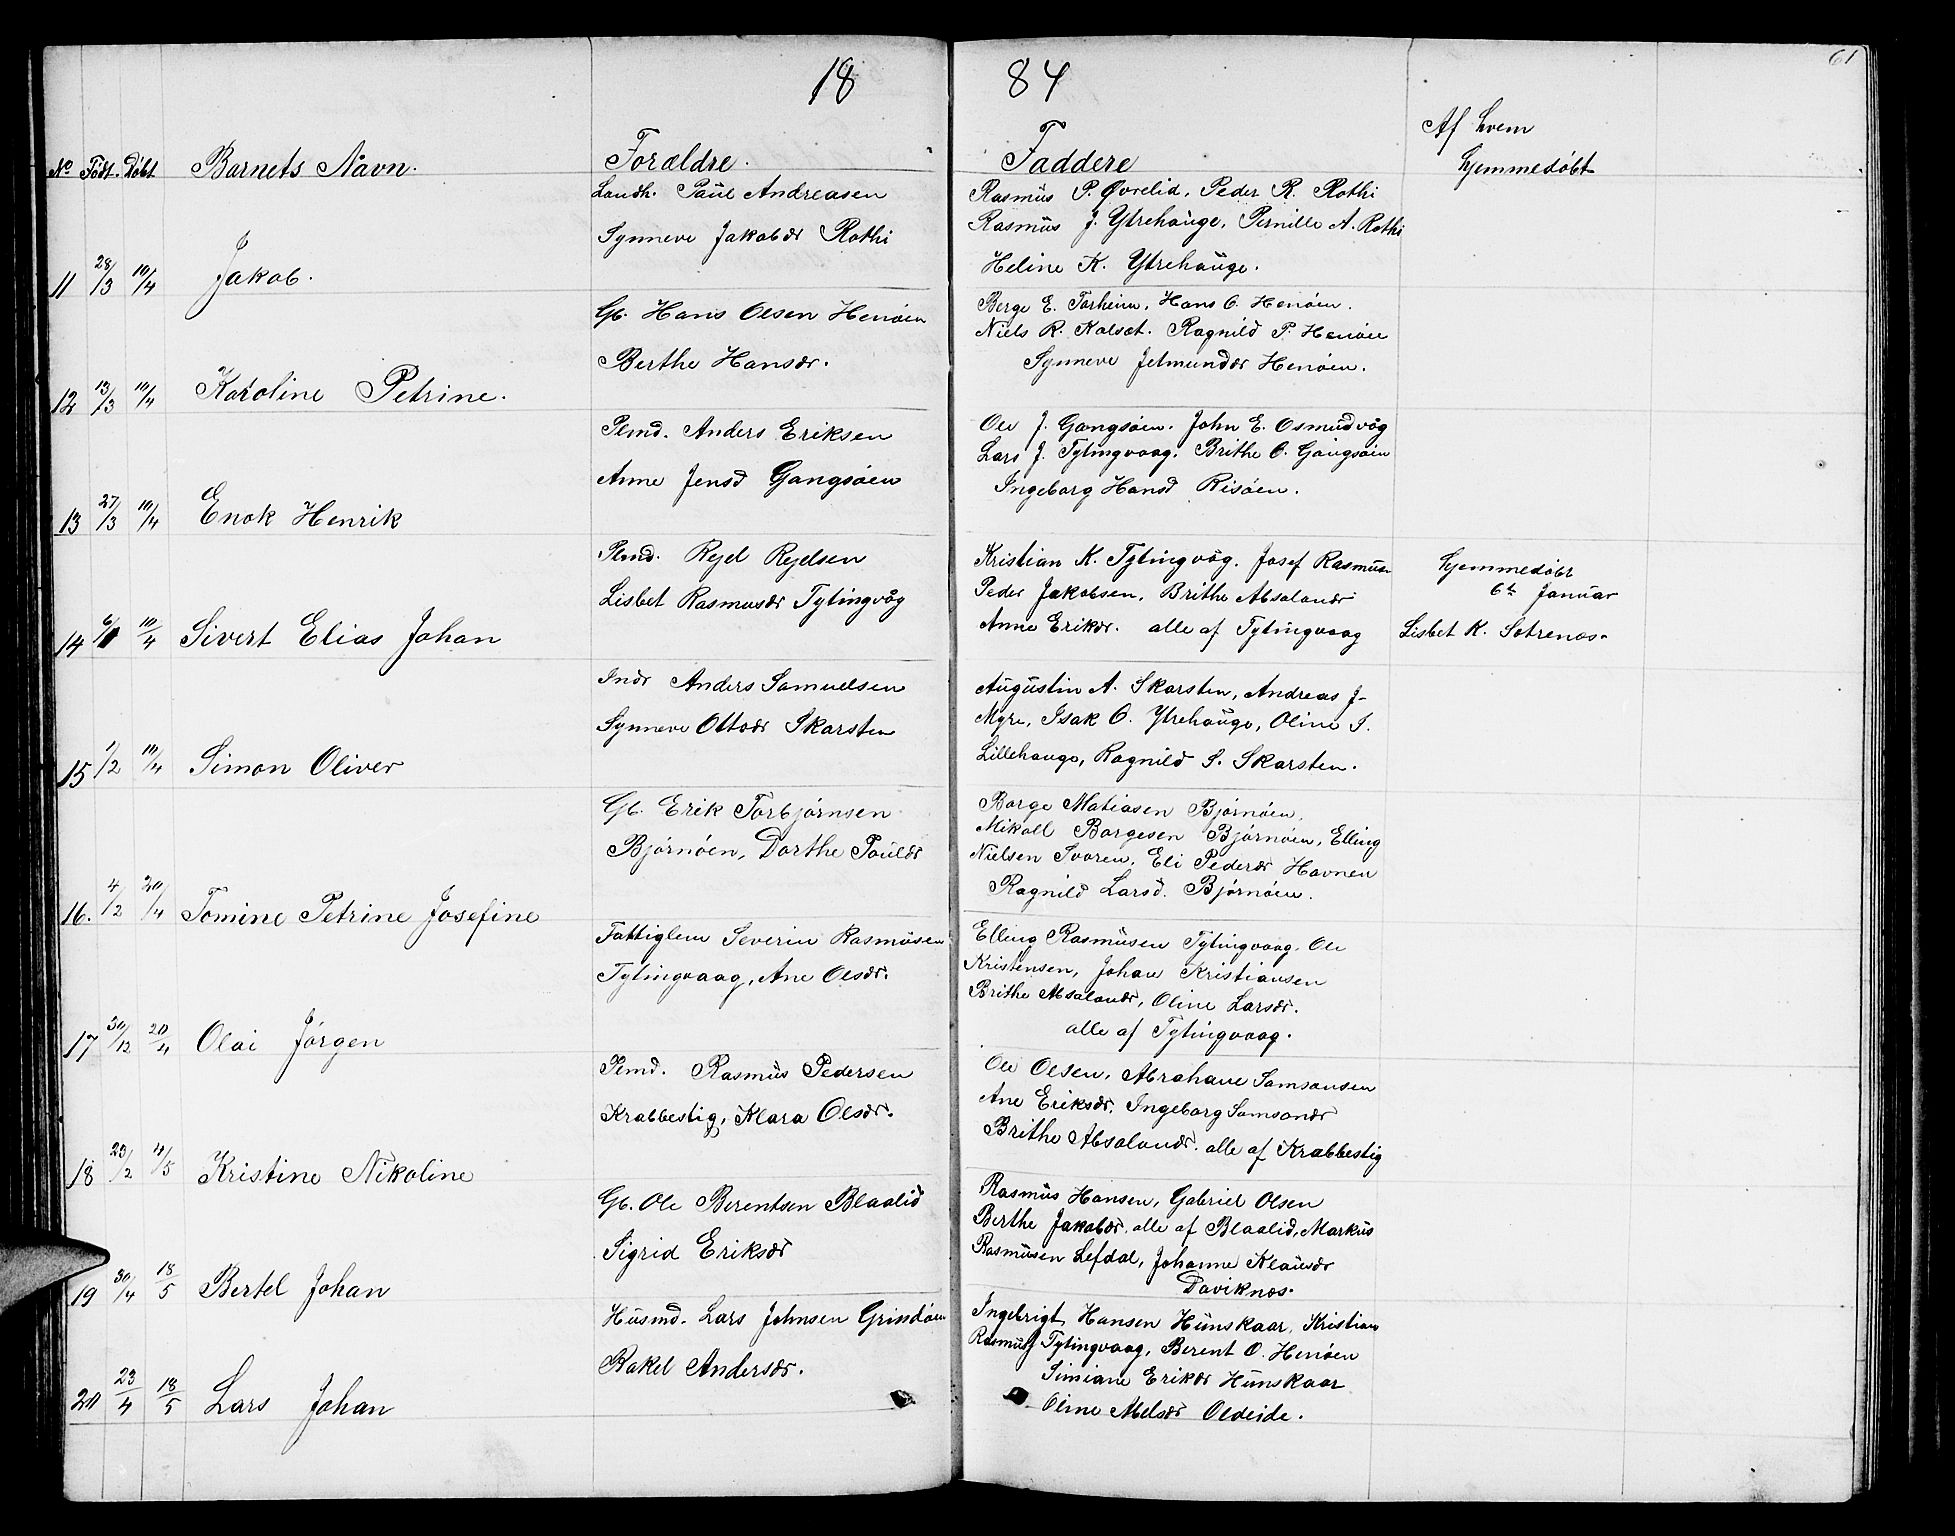 61
18 84
No Født. Døbt Barnets Navn. Forældre. Faddere Af hvem
hjemmedøbt
Landh. Paul Andreasen
Synneve Jakobdr Rothi
11 28/3 10/4 Jakob.
Rasmus P. Øvrelid, Peder R. Rothi
Rasmus J. Ytrehauge, Pernille A. Rothi
Heline K. Ytrehauge.
Gb. Hans Olsen Henøen
Berthe Hansdr.
12 13/3 10/4 Karoline Petrine.
Berge E. Torheim, Hans O. Henøen.
Niels R. Kolset. Ragnild P. Henøen
Synneve Jetmunddr Henøen.
Plmd. Anders Eriksen
Anne Jensd Gangsøen
13 27/3 10/4 Enok Henrik
Ole J. Gangsøen. John E. Osmudvåg
Lars J. Tytingvaag. Brithe O. Gangsøen
Ingeborg Hansd Risøen.
Plmd. Rejel Rejelsen
Lisbet Rasmusdr Tytingvåg
14 6/1 10/4 Sivert Elias Johan
Kristian K. Tytingvåg. Josef Rasmus.
Peder Jakobsen, Brithe Absalondr
Anne Erikdr. alle af Tytingvaag
hjemmedøbt
6te Januar
Lisbet K. Sotrenæs.
Indr Anders Samuelsen
Synneve Ottodr Skarsten
15 1/2 10/4 Simon Oliver
Augustin A. Skarsten, Andreas J-
Myre, Isak O. Ytrehauge, Oline S.
Lillehauge, Ragnild S. Skarsten.
Gb. Erik Torbjørnsen
Bjørnøen, Dorthe Pouldr
16. 4/2 20/4 Tomine Petrine Josefine
Borge Matiasen Bjørnøen,
Mikall Borgesen Bjørnøen, Elling
Nielsen Svoren, Eli Pederdr Havnen
Ragnild Larsd. Bjørnøen.
Fattiglem Severin Rasmusen
Tytingvaag, Ane Olsdr.
17 30/12 20/4 Olai Jørgen
Elling Rasmusen Tytingvaag. Ole
Kristensen, Johan Kristiansen
Brithe Absalondr, Oline Larsdr.
alle af Tytingvaag.
Plmd. Rasmus Pedersen
Krabbestig, Klara Olsdr.
18 23/2 11/5 Kristine Nikoline
Ole Olsen, Abraham Samsonsen
Ane Eriksdr. Ingeborg Samsondr
Brithe Absalondr. alle af Krabbestig
Gb. Ole Berentsen Blaalid
Sigrid Eriksdr
19 30/4 18/5 Bertel Johan
Rasmus Hansen, Gabriel Olsen
Berthe Jakobdr. alle af Blaalid, Markus
Rasmusen Lefdal, Johanne Klausdr
Daviknæs.
Husmd. Lars Johnsen Grindøen
Rakel Andersdr.
20 23/4 18/5 Lars Johan
Ingebrigt Hansen Hunskaar, Kristian
Rasmus Tytingvaag, Berent O. Henøen
Simiane Erikdr Hunskaar
Oline Abelsdr Oldeide.